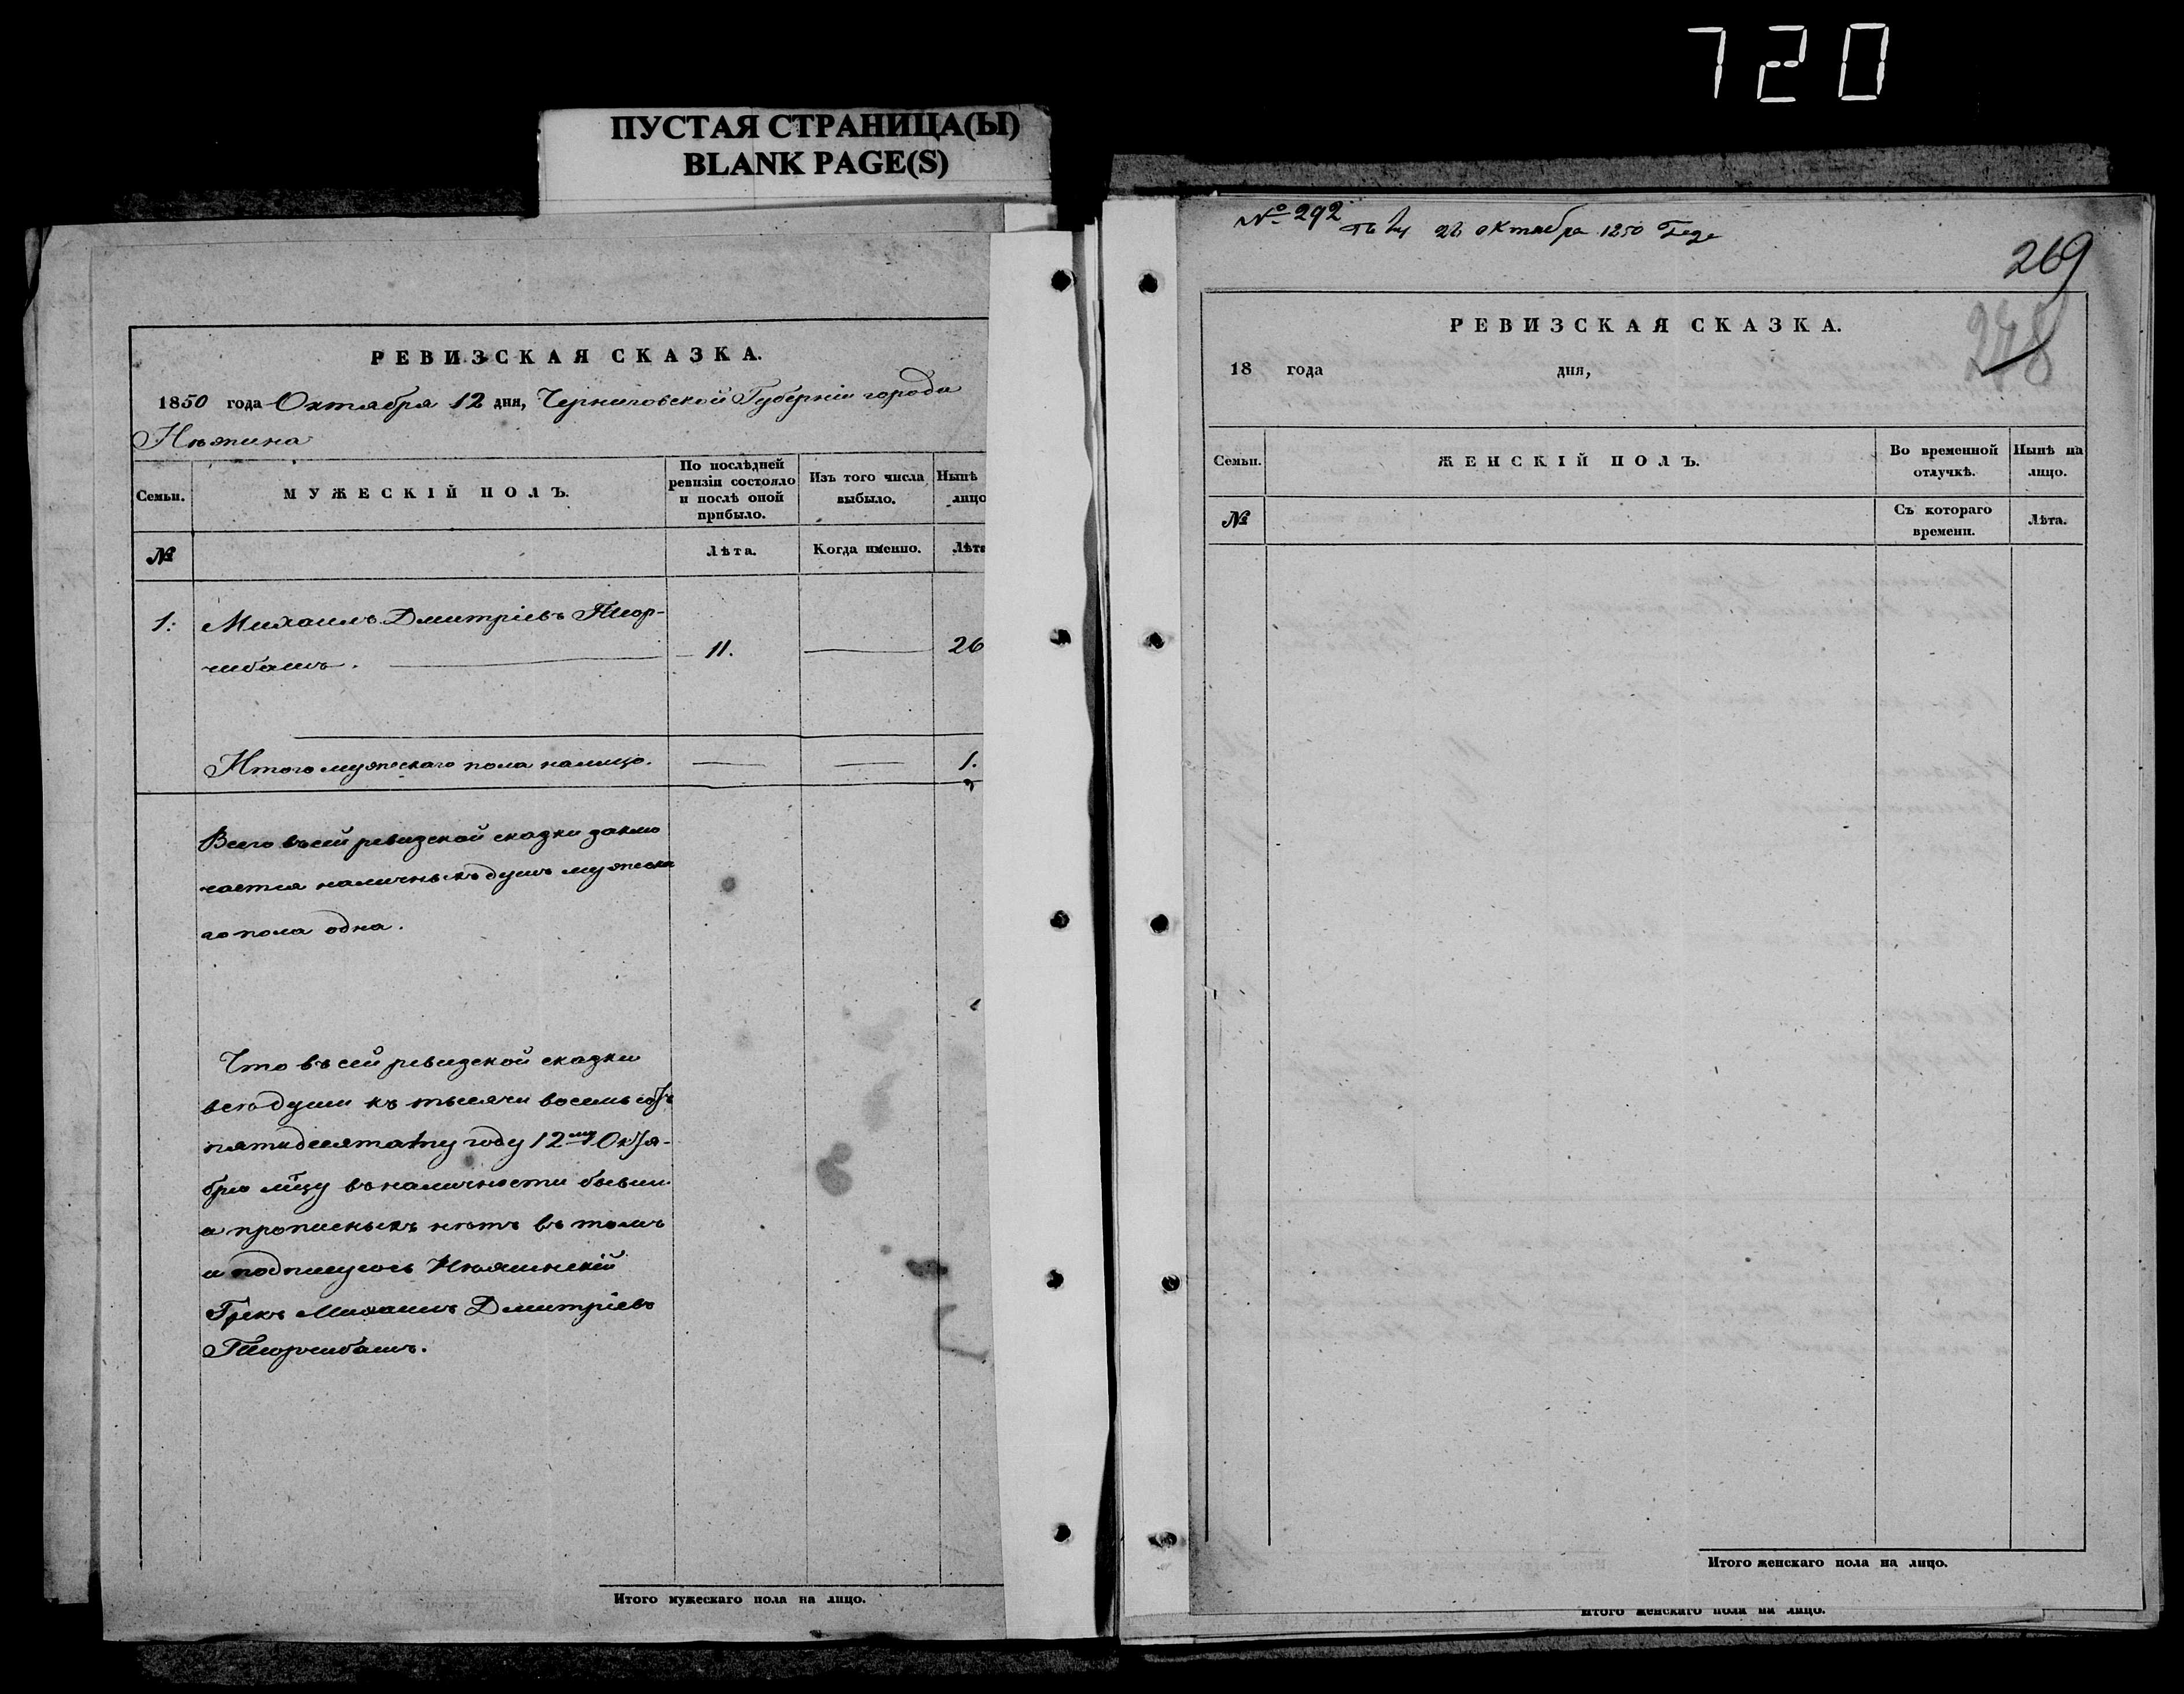 720
ПУСТАЯ СТРАНИЦА(Ы)
BLANK PAGE(S)
РЕВИЗСКАЯ СКАЗКА.
1850 года Октября 12 дня, Черниговской Губерніи города
Нѣжина
Семьи.
МУЖЕСКІЙ ПОЛЪ.
По послѣдней
ревизіи состояло
и послѣ оной
прибыло.
Изъ того числа
выбыло.
Нынѣ
лицо
№
Лѣта.
Когда именно.
Лѣта
1: Михаилъ Дмитріевъ
11. 26
Итого мужескаго пола налицо. 1.
Всего въ сей ревизской сказки заклю
чается наличныхъ душъ мужеска
го пола одна.
Что въ сей ревизской сказки
всѣ души къ тысячи восемь сотъ
пятидесятому году 12му Октя-
брю мцу въ наличности бывши
а прописныхъ нѣтъ въ томъ
и подпишуюсь Нѣжинскій
Грекъ Михаилъ Дмитріевъ
Итого мужескаго пола на лицо.
№ 292
22 октября 1850 Года
269
248
РЕВИЗСКАЯ СКАЗКА.
18 года дня,
Семьи.
ЖЕНСКІЙ ПОЛЪ.
Во временной
отлучкѣ.
Нынѣ на
лицо.
№
Съ котораго
времени.
Лѣта.
Итого женскаго пола на лицо.
Итого женскаго пола на лицо.